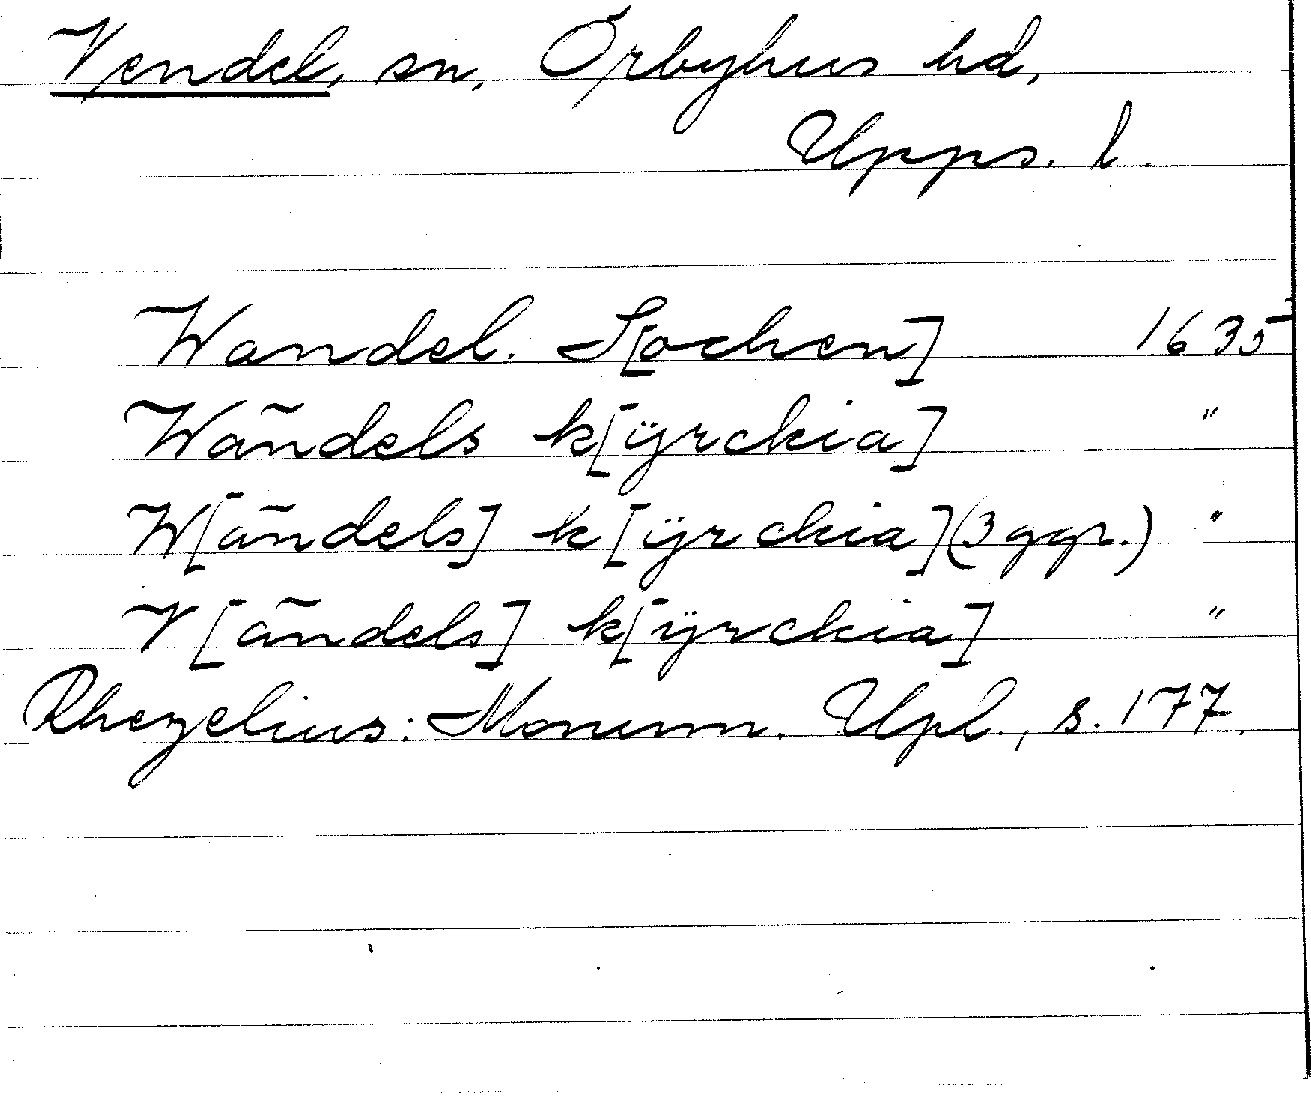 Vendel, sn, Örbyhus hd,
Upps. l.
Wandel. S[ochen] 1635
Wãndels k[ÿrckia] "
W[ãndels] k[ÿrckia] (3 ggr.) "
V[ãndels] k[ÿrckia] "
Rhezelius: Monum. Upl., s. 177.